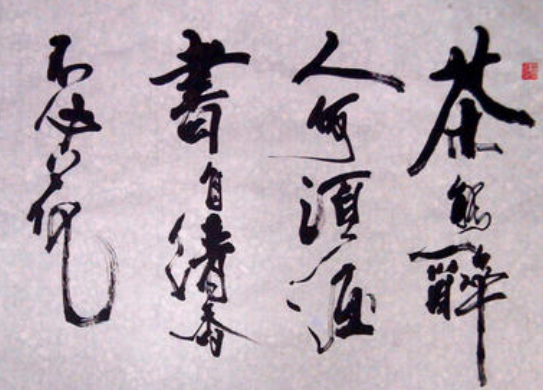 茶能醉
人何須酒
書自清香
不花